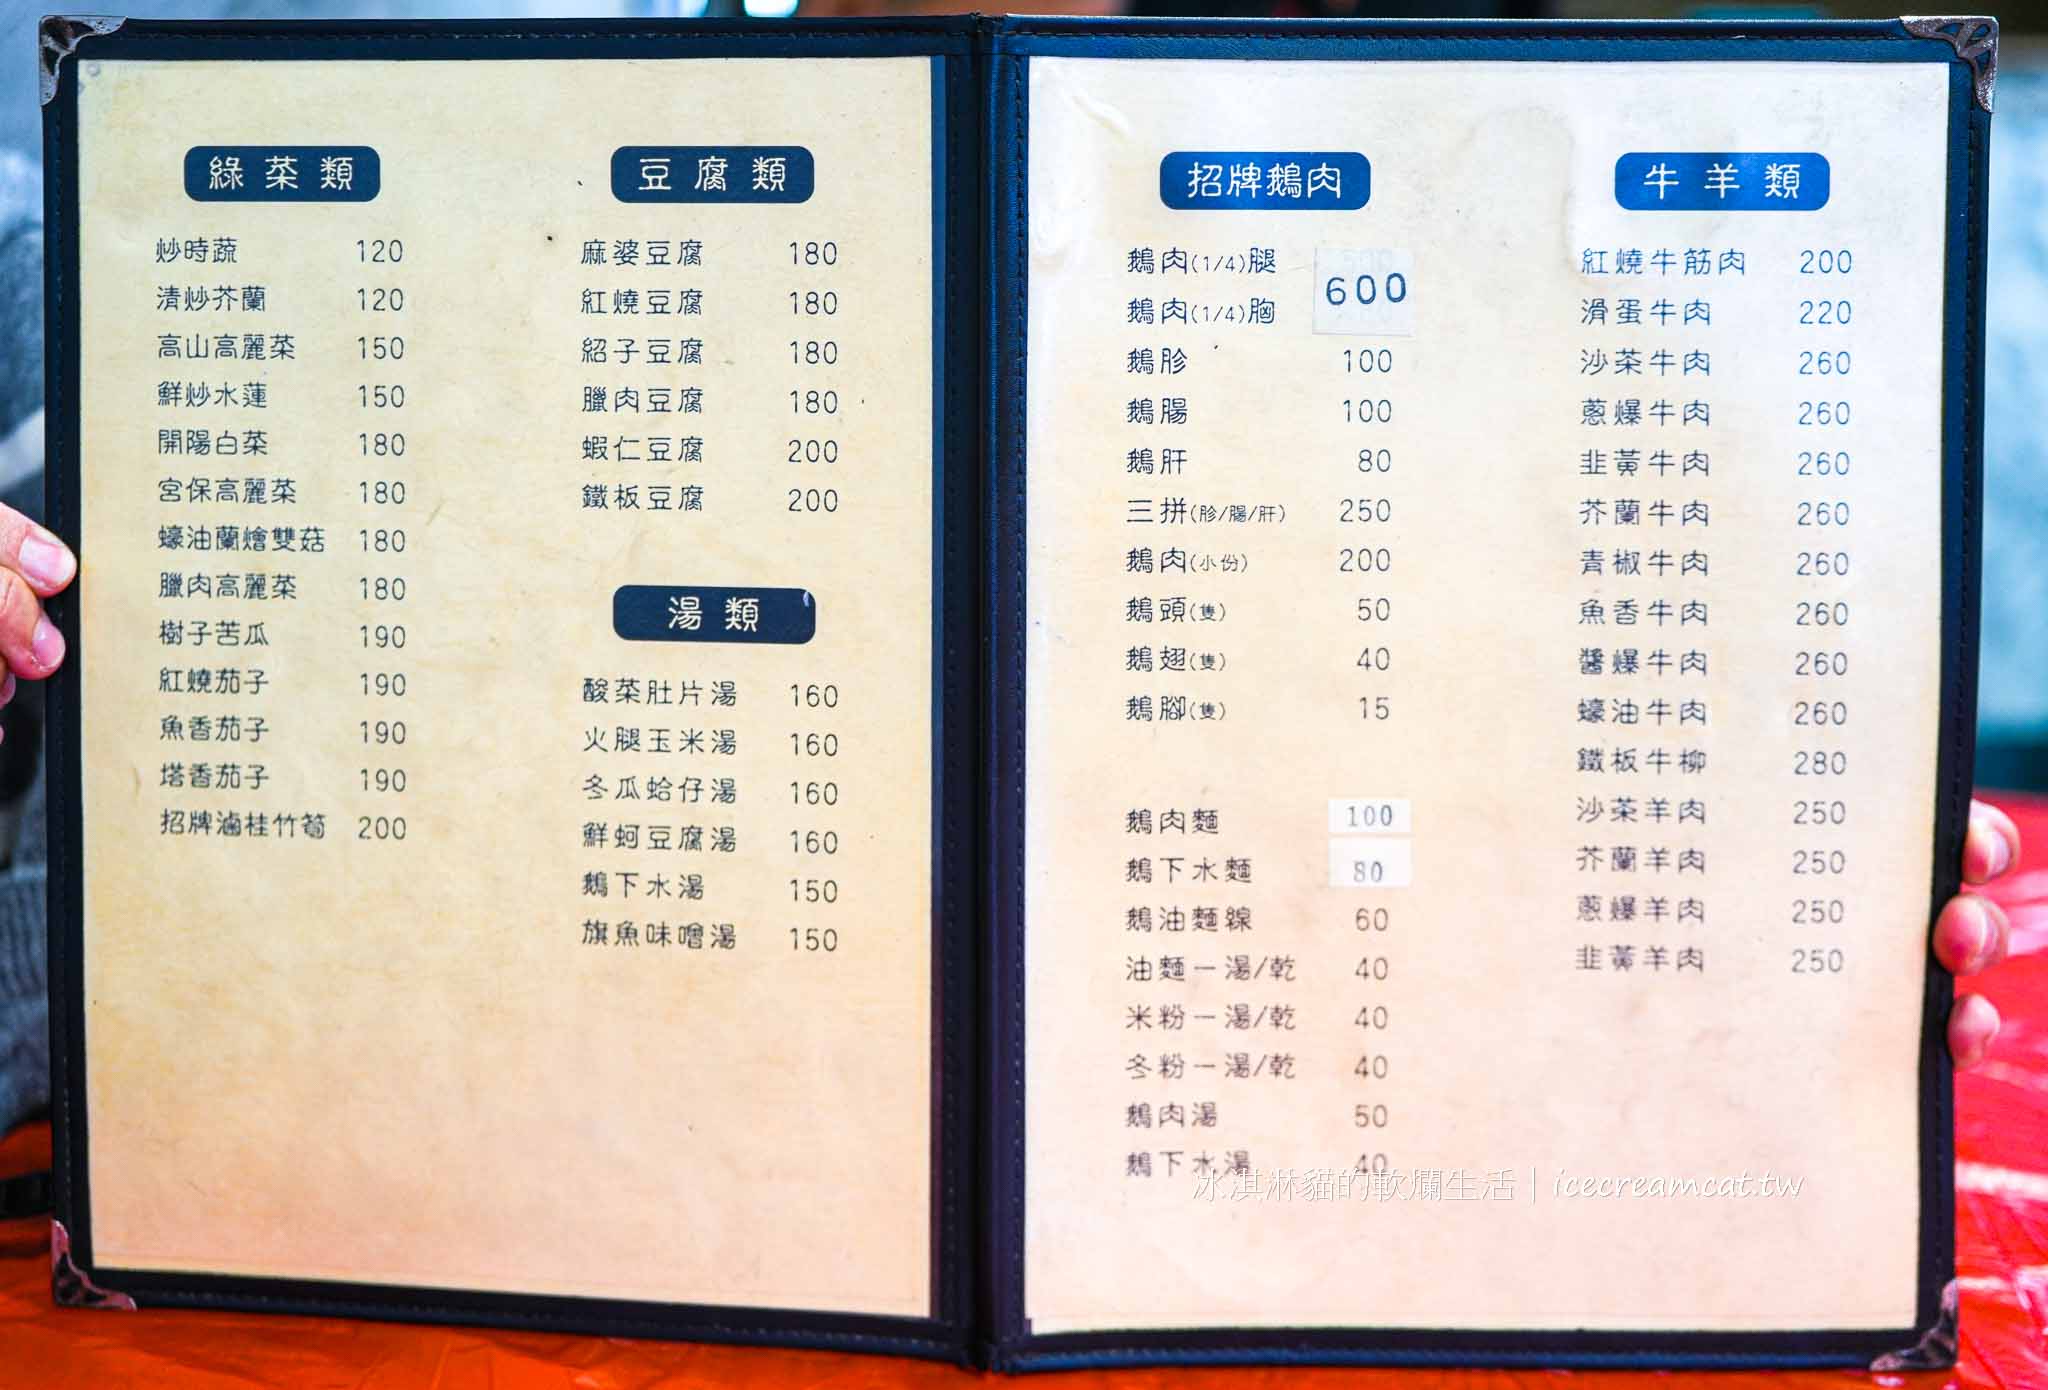 綠菜類
炒時蔬 120
清炒芥蘭 120
高山高麗菜 150
鮮炒水蓮 150
開陽白菜 180
宮保高麗菜 180
蠔油蘭燴雙菇 180
臘肉高麗菜 180
樹子苦瓜 190
紅燒茄子 190
魚香茄子 190
塔香茄子 190
招牌滷桂竹筍 200
豆腐類
麻婆豆腐 180
紅燒豆腐 180
紹子豆腐 180
臘肉豆腐 180
蝦仁豆腐 200
鐵板豆腐 200
湯類
酸菜肚片湯 160
火腿玉米湯 160
冬瓜蛤仔湯 160
鮮蚵豆腐湯 160
鵝下水湯 150
旗魚味噌湯 150
招牌鵝肉
鵝肉(1/4)腿
600
鵝肉(1/4)胸
鵝胗 100
鵝腸 100
鵝肝 80
三拼(胗/腸/肝) 250
鵝肉(小份) 200
鵝頭(隻) 50
鵝翅(隻) 40
鵝腳(隻) 15
鵝肉麵 100
鵝下水麵 80
鵝油麵線 60
油麵－湯/乾 40
米粉－湯/乾 40
冬粉－湯/乾 40
鵝肉湯 50
鵝下水湯 40
牛羊類
紅燒牛筋肉 200
滑蛋牛肉 220
沙茶牛肉 260
蔥爆牛肉 260
韭黃牛肉 260
芥蘭牛肉 260
青椒牛肉 260
魚香牛肉 260
醬爆牛肉 260
蠔油牛肉 260
鐵板牛柳 280
沙茶羊肉 250
芥蘭羊肉 250
蔥爆羊肉 250
韭黃羊肉 250
冰淇淋貓的軟爛生活｜icecreamcat.tw